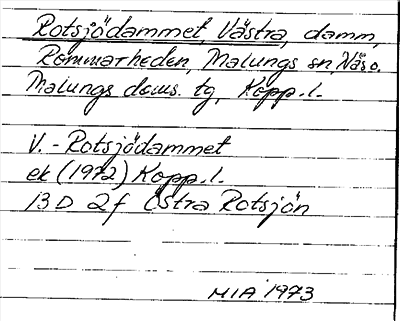 Rotsjödammet, Västra, damm,
Rommarheden, Malungs sn,
Malungs doms. tg, Kopp. l.
V. - Rotsjödammet
ek (1972) Kopp. l.
13 D 2f Östra Rotsjön
MIA 1973